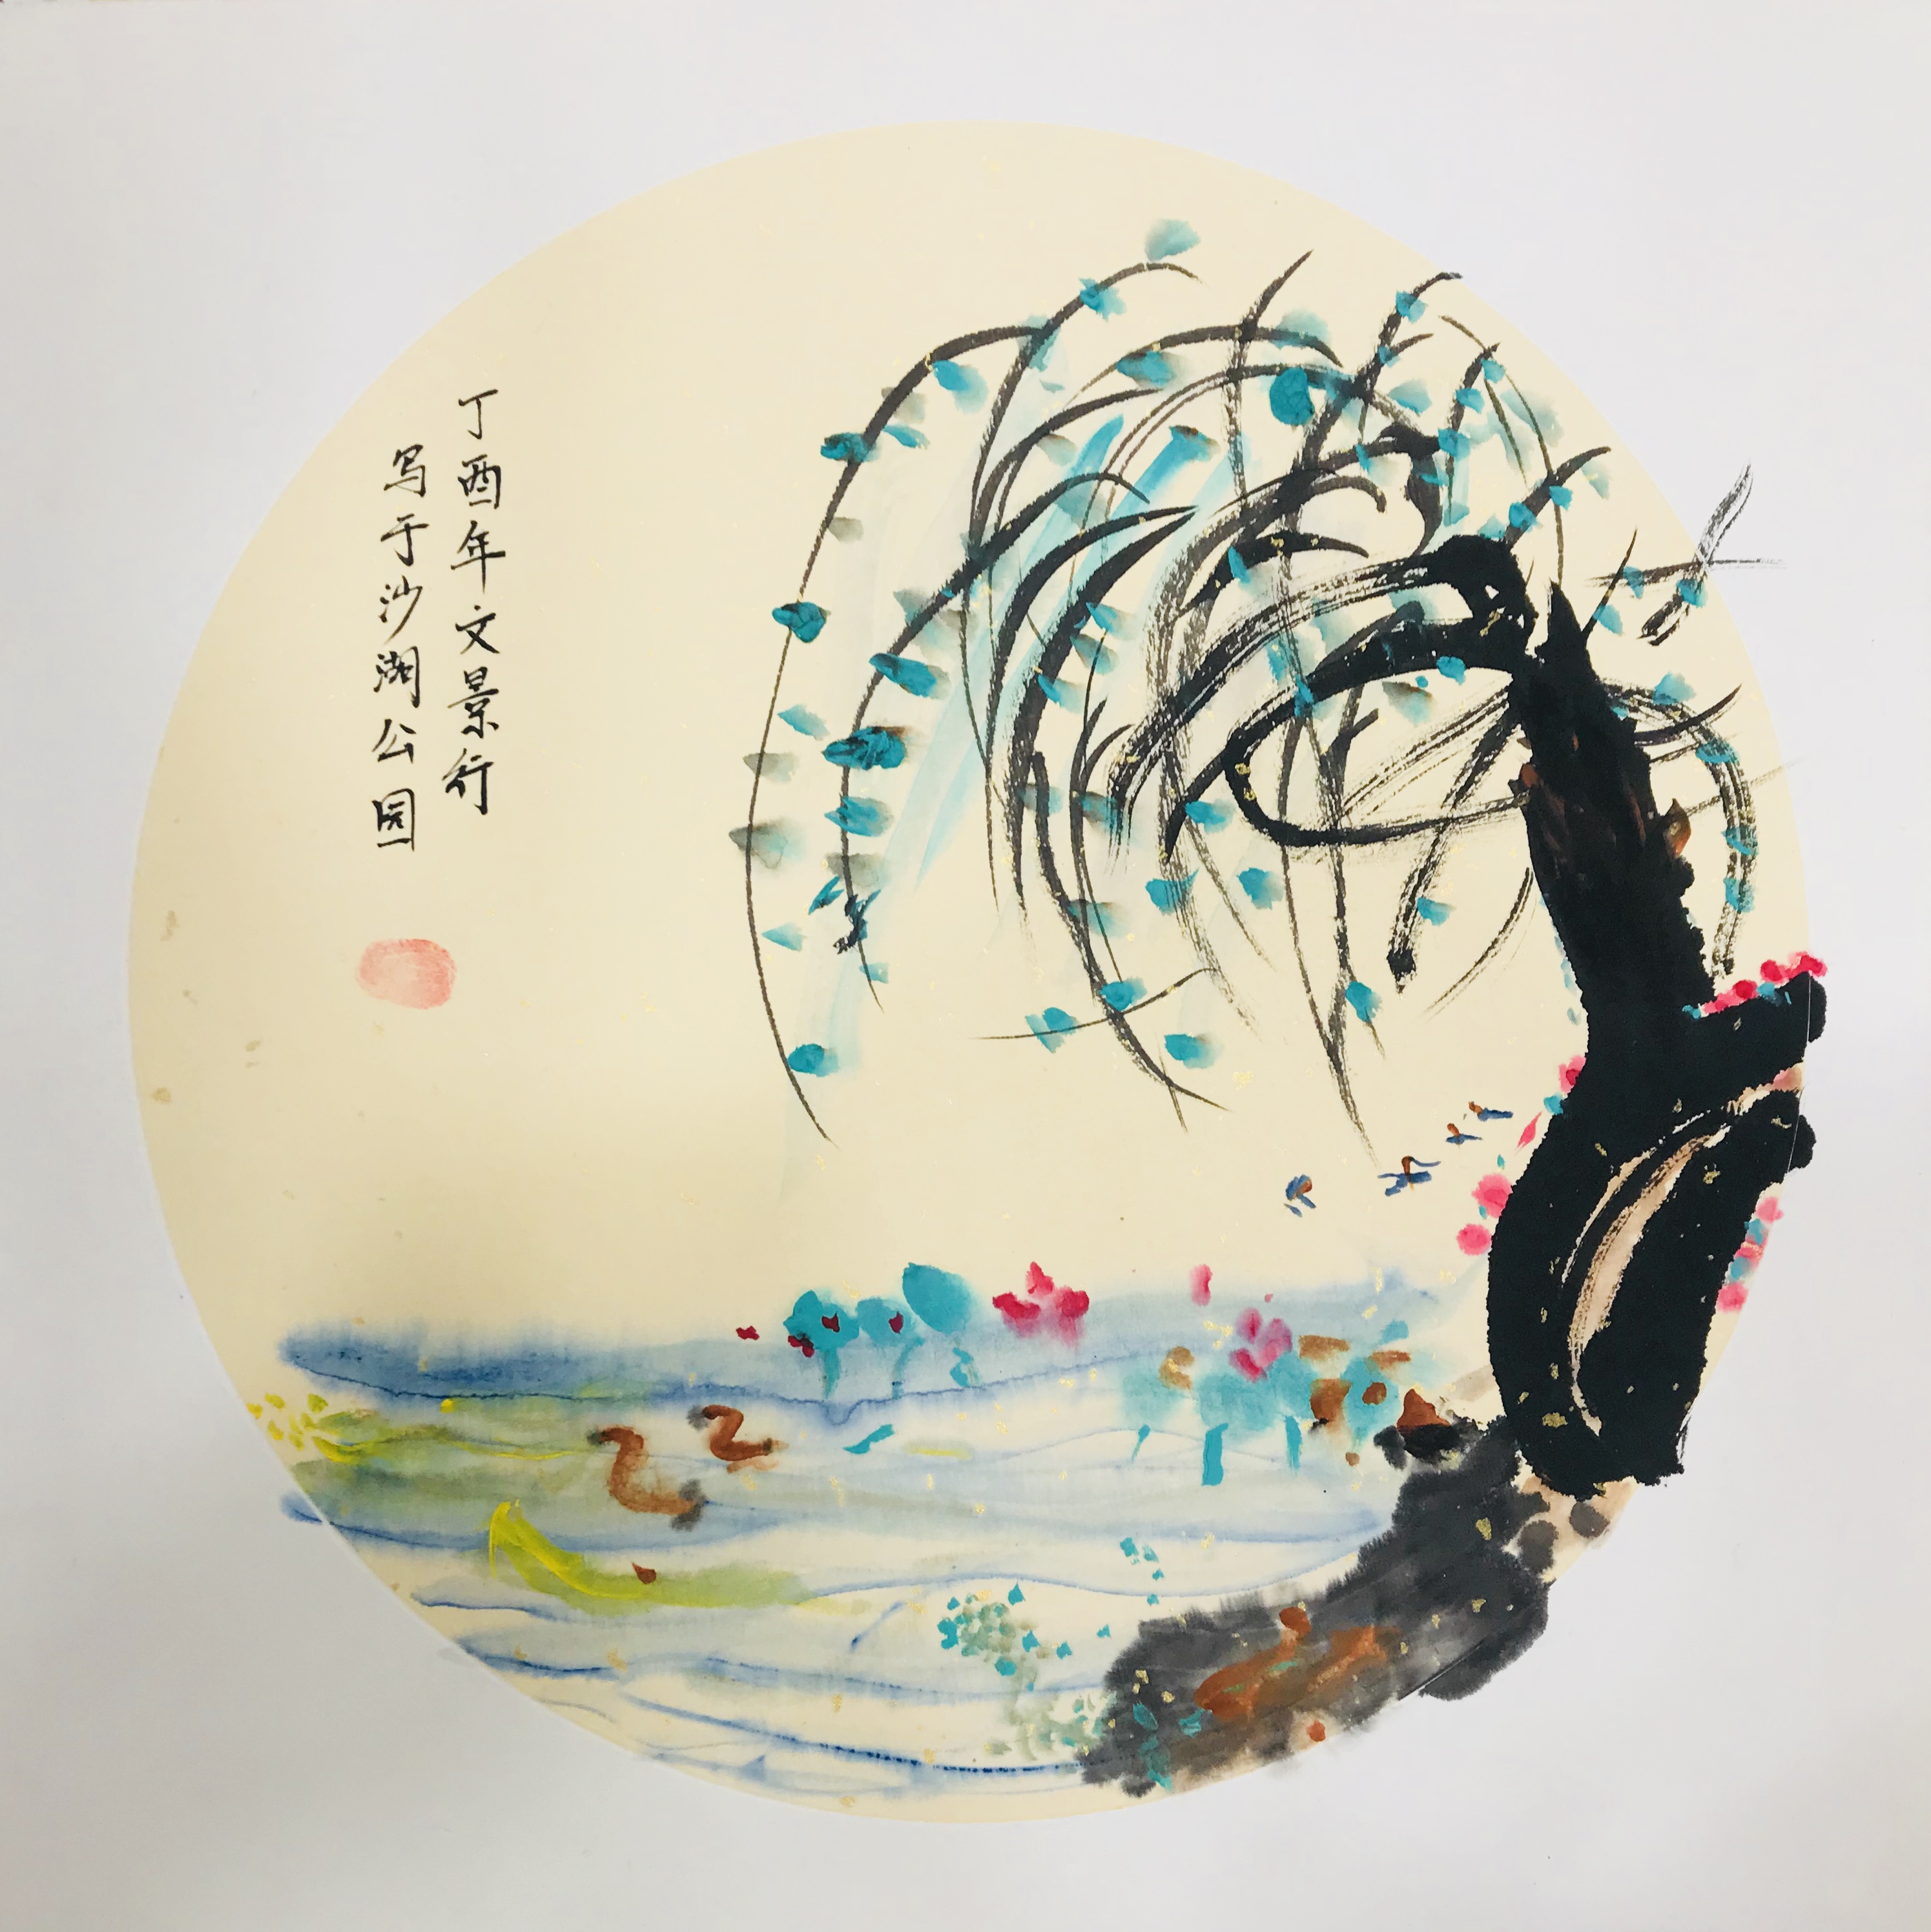 丁酉年文景行
写于沙湖公园